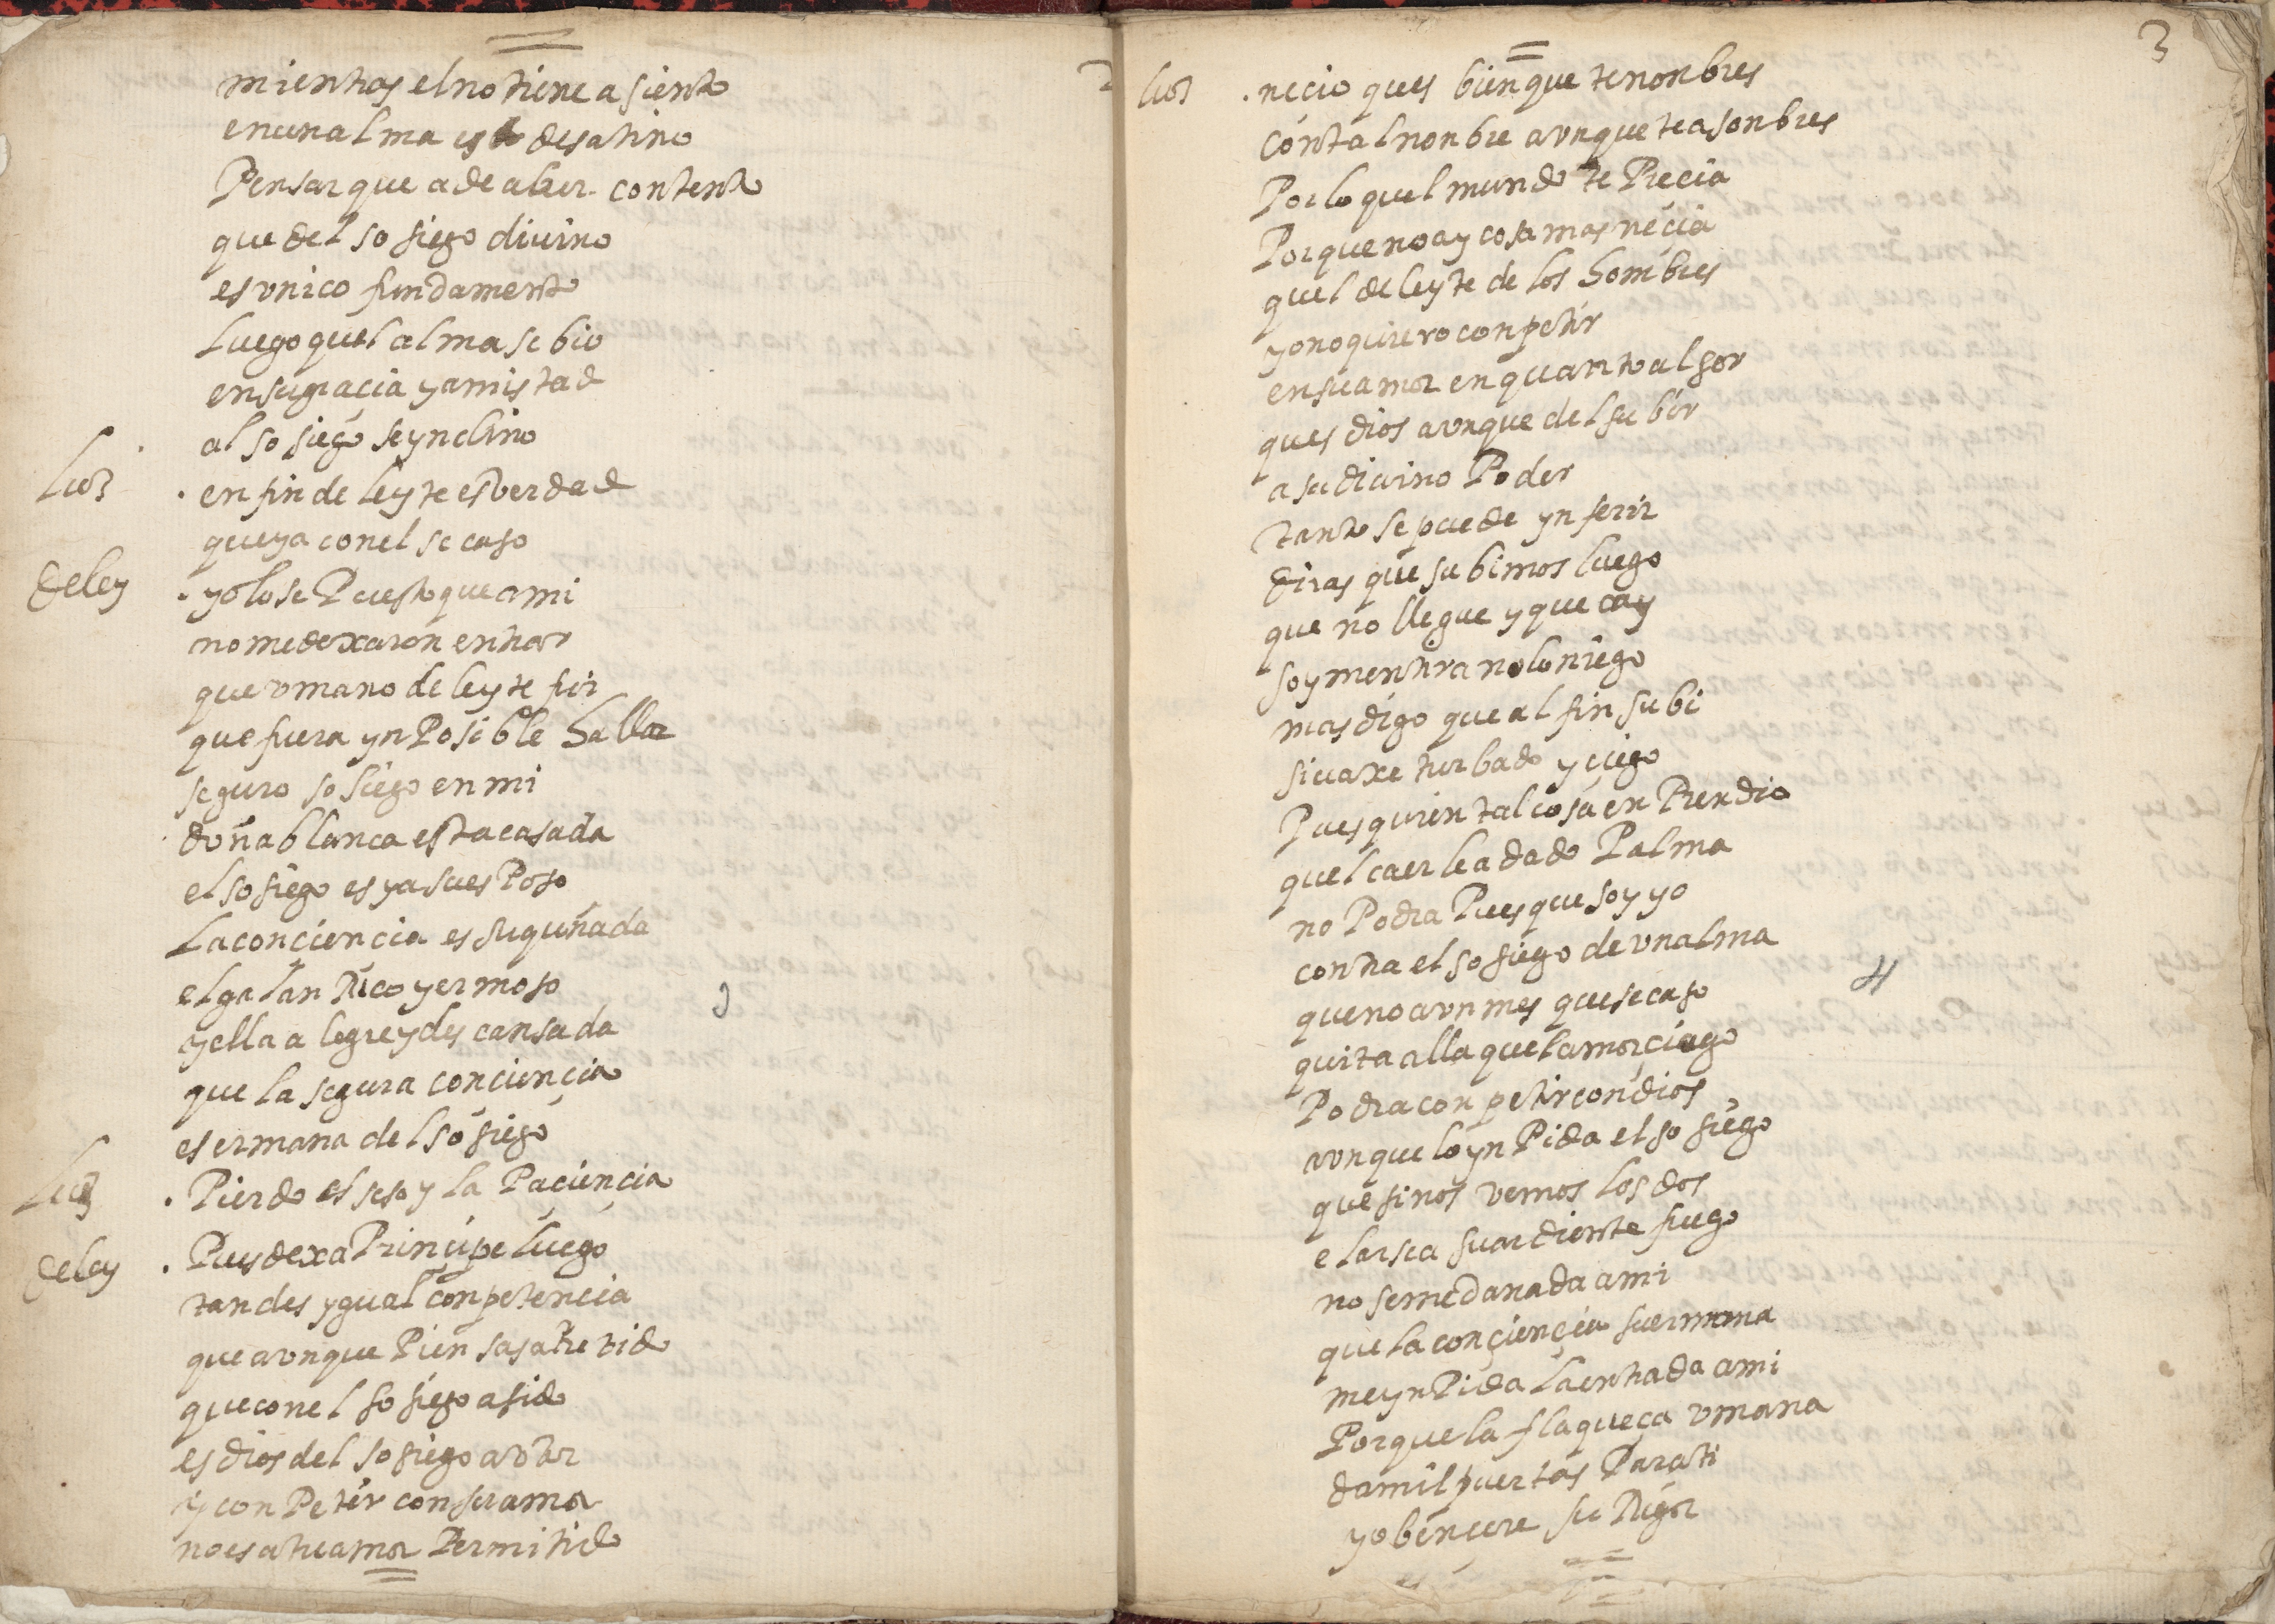 mientras el no tiene asiento
en un alma es desatino
Pensar que a de aber contento
que del sosiego diuino
es vnico fundamento
Luego quel alma se bio
en su gracia y amistad
al sosiego se ynclino
Luz . en fin deleyte es verdad
que ya con el se caso
deley . yo lo se Puesto que a mi
no me dexaron entrar
que vmano deleyte fui
que fuera ynPosible hallar
seguro sosiego en mi
doña blanca esta casada
el sosiego es ya su esPoso
La conçiençia es su quñada
el galan Rico y ermoso
y ella alegre y descansada
que la segura conçiençia
es ermana del sosiego
Luz . Pierdo el seso y la Paçiençia
deley . Pues dexa Prinçipe luego
tan desygual conpetencia
que avnque Piensas atrevido
que con el sosiego a sido
es dios del sosiego avtor
y conPetir con su amor
no es a tu amor Permitido
3
luz . necio ques bien que te nonbres
con tal nonbre avnque te asonbres
Por lo quel mundo te Precia
Porque no ay cosa mas neçia
quel deleyte de los hombres
yo no quiero conpetir
en su amor en quanto al ser
ques dios avnque del subir
a su diuino Poder
tanto se puede ynferir
diras que subimos luego
que no llegue y que cay
soy mentira no lo niego
mas digo que al fin subi
si uaxe turbado y çiego
Pues quien tal cosa enPrendio
quel caer le a dado Palma
no Podra Pues que soy yo
contra el sosiego de vn alma
que no a vn mes que se caso
quita alla quel amor çiego
Podra conpetir con dios
avnque lo ynPida el sosiego
que si nos vemos los dos
elarse a su ardiente fuego
no se me da nada a mi
que la conçiençia su ermana
me ynPida la entrada a mi
Porque la flaqueça vmana
da mil puertas Para ti
yo bençere su Rigor